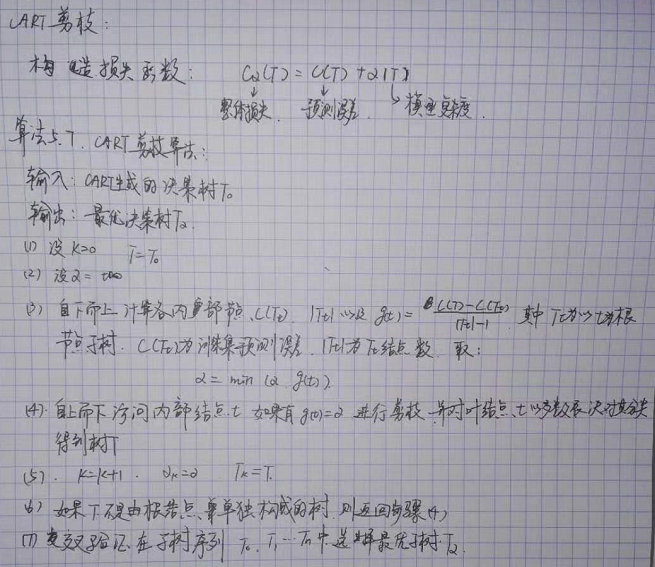 CART剪枝:
构造损失函数: Cα(T) = C(T) + α|T|
整体损失 预测误差 模型复杂度
算法5.7. CART剪枝算法:
输入: CART生成的决策树T₀
输出: 最优决策树Tα
(1) 设 k=0 T=T₀
(2) 设 α = +∞
(3) 自下而上计算各内部节点 C(Tt) |Tt| 以及 g(t) = (C(t)-C(Tt))/(|Tt|-1) 其中 Tt为以t为根
节点子树. C(Tt)为训练集预测误差. |Tt|为Tt结点数 取:
α = min (α g(t))
(4) 自上而下访问内部结点t 如果有 g(t)=α 进行剪枝 并对叶结点t以多数表决对其分类
得到树T
(5). k=k+1. αk=α Tk=T.
(6) 如果T不是由根结点单独构成的树, 则返回步骤(4)
(7) 交叉验证在子树序列 T₀, T₁ ⋯ Tn中选择最优子树Tα